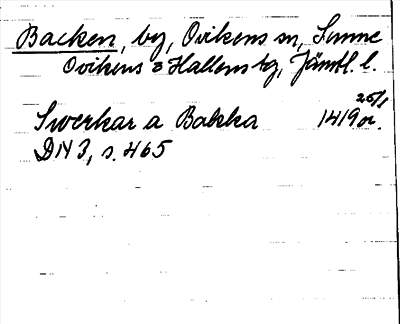 Backen, by, Ovikens sn, Sunne
Ovikens o Hallens tg, Jämtl. l.
25/1
Swerkar a Bakka 1419 or.
DN 3, s. 465